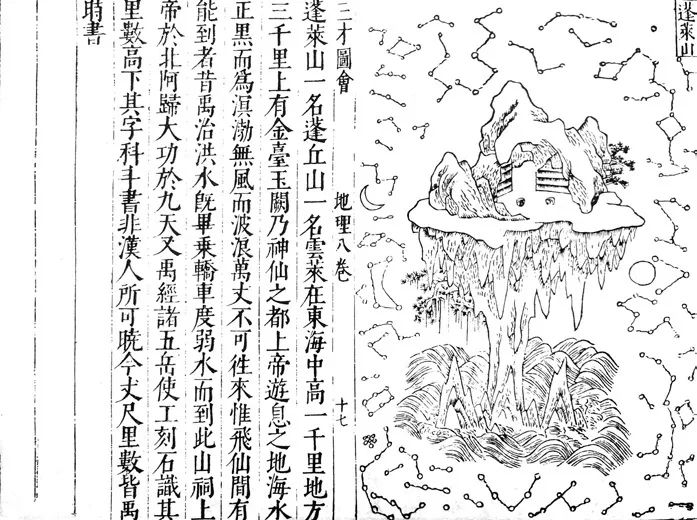 蓬萊山
三才圖會
地理八卷
十七
蓬萊山一名蓬丘山一名雲萊在東海中高一千里地方
三千里上有金臺玉闕乃神仙之都上帝遊息之地海水
正黑而爲溟渤無風而波浪萬丈不可徃來惟飛仙間有
能到者昔禹治洪水旣畢乗轎車度弱水而到此山祠上
帝於北阿歸大功於九天又禹經諸五岳使工刻石識其
里數高下其字科斗書非漢人所可曉今丈尺里數皆禹
時書